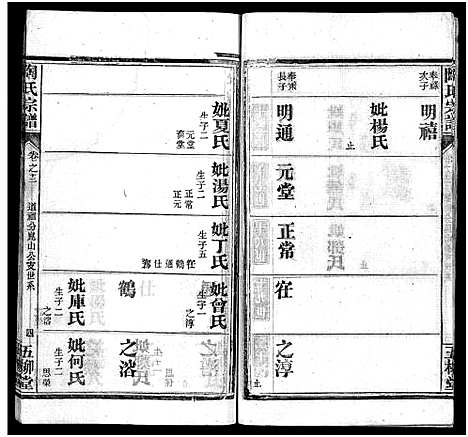 奉承次子
明禧
妣楊氏
止
奉承長子
明通
元堂
正常
在
之淳
止
妣夏氏
生子二
元堂
妣湯氏
生子二
正常
正元
妣丁氏
生子五
在
鶴
仕
妣曾氏
生子一
之淳
鶴
之溶
妣庫氏
生子一
之溶
妣何氏
生子二
思榮
陶氏宗譜
卷之二
道疆分崑山公支世系
四
五柳堂